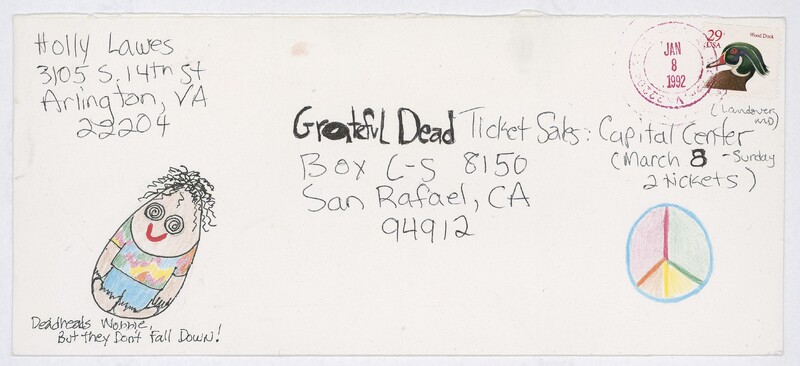 Holly Lawes
3105 S. 14th St
Arlington, VA
22204
29
USA
Wood Duck
JAN
8
1992
(Landover, MD)
Grateful Dead Ticket Sales: Capital Center
(March 8 - Sunday
2 tickets)
Box C-S 8150
San Rafael, CA
94912
Deadheads Wobble,
But they Don't Fall Down!